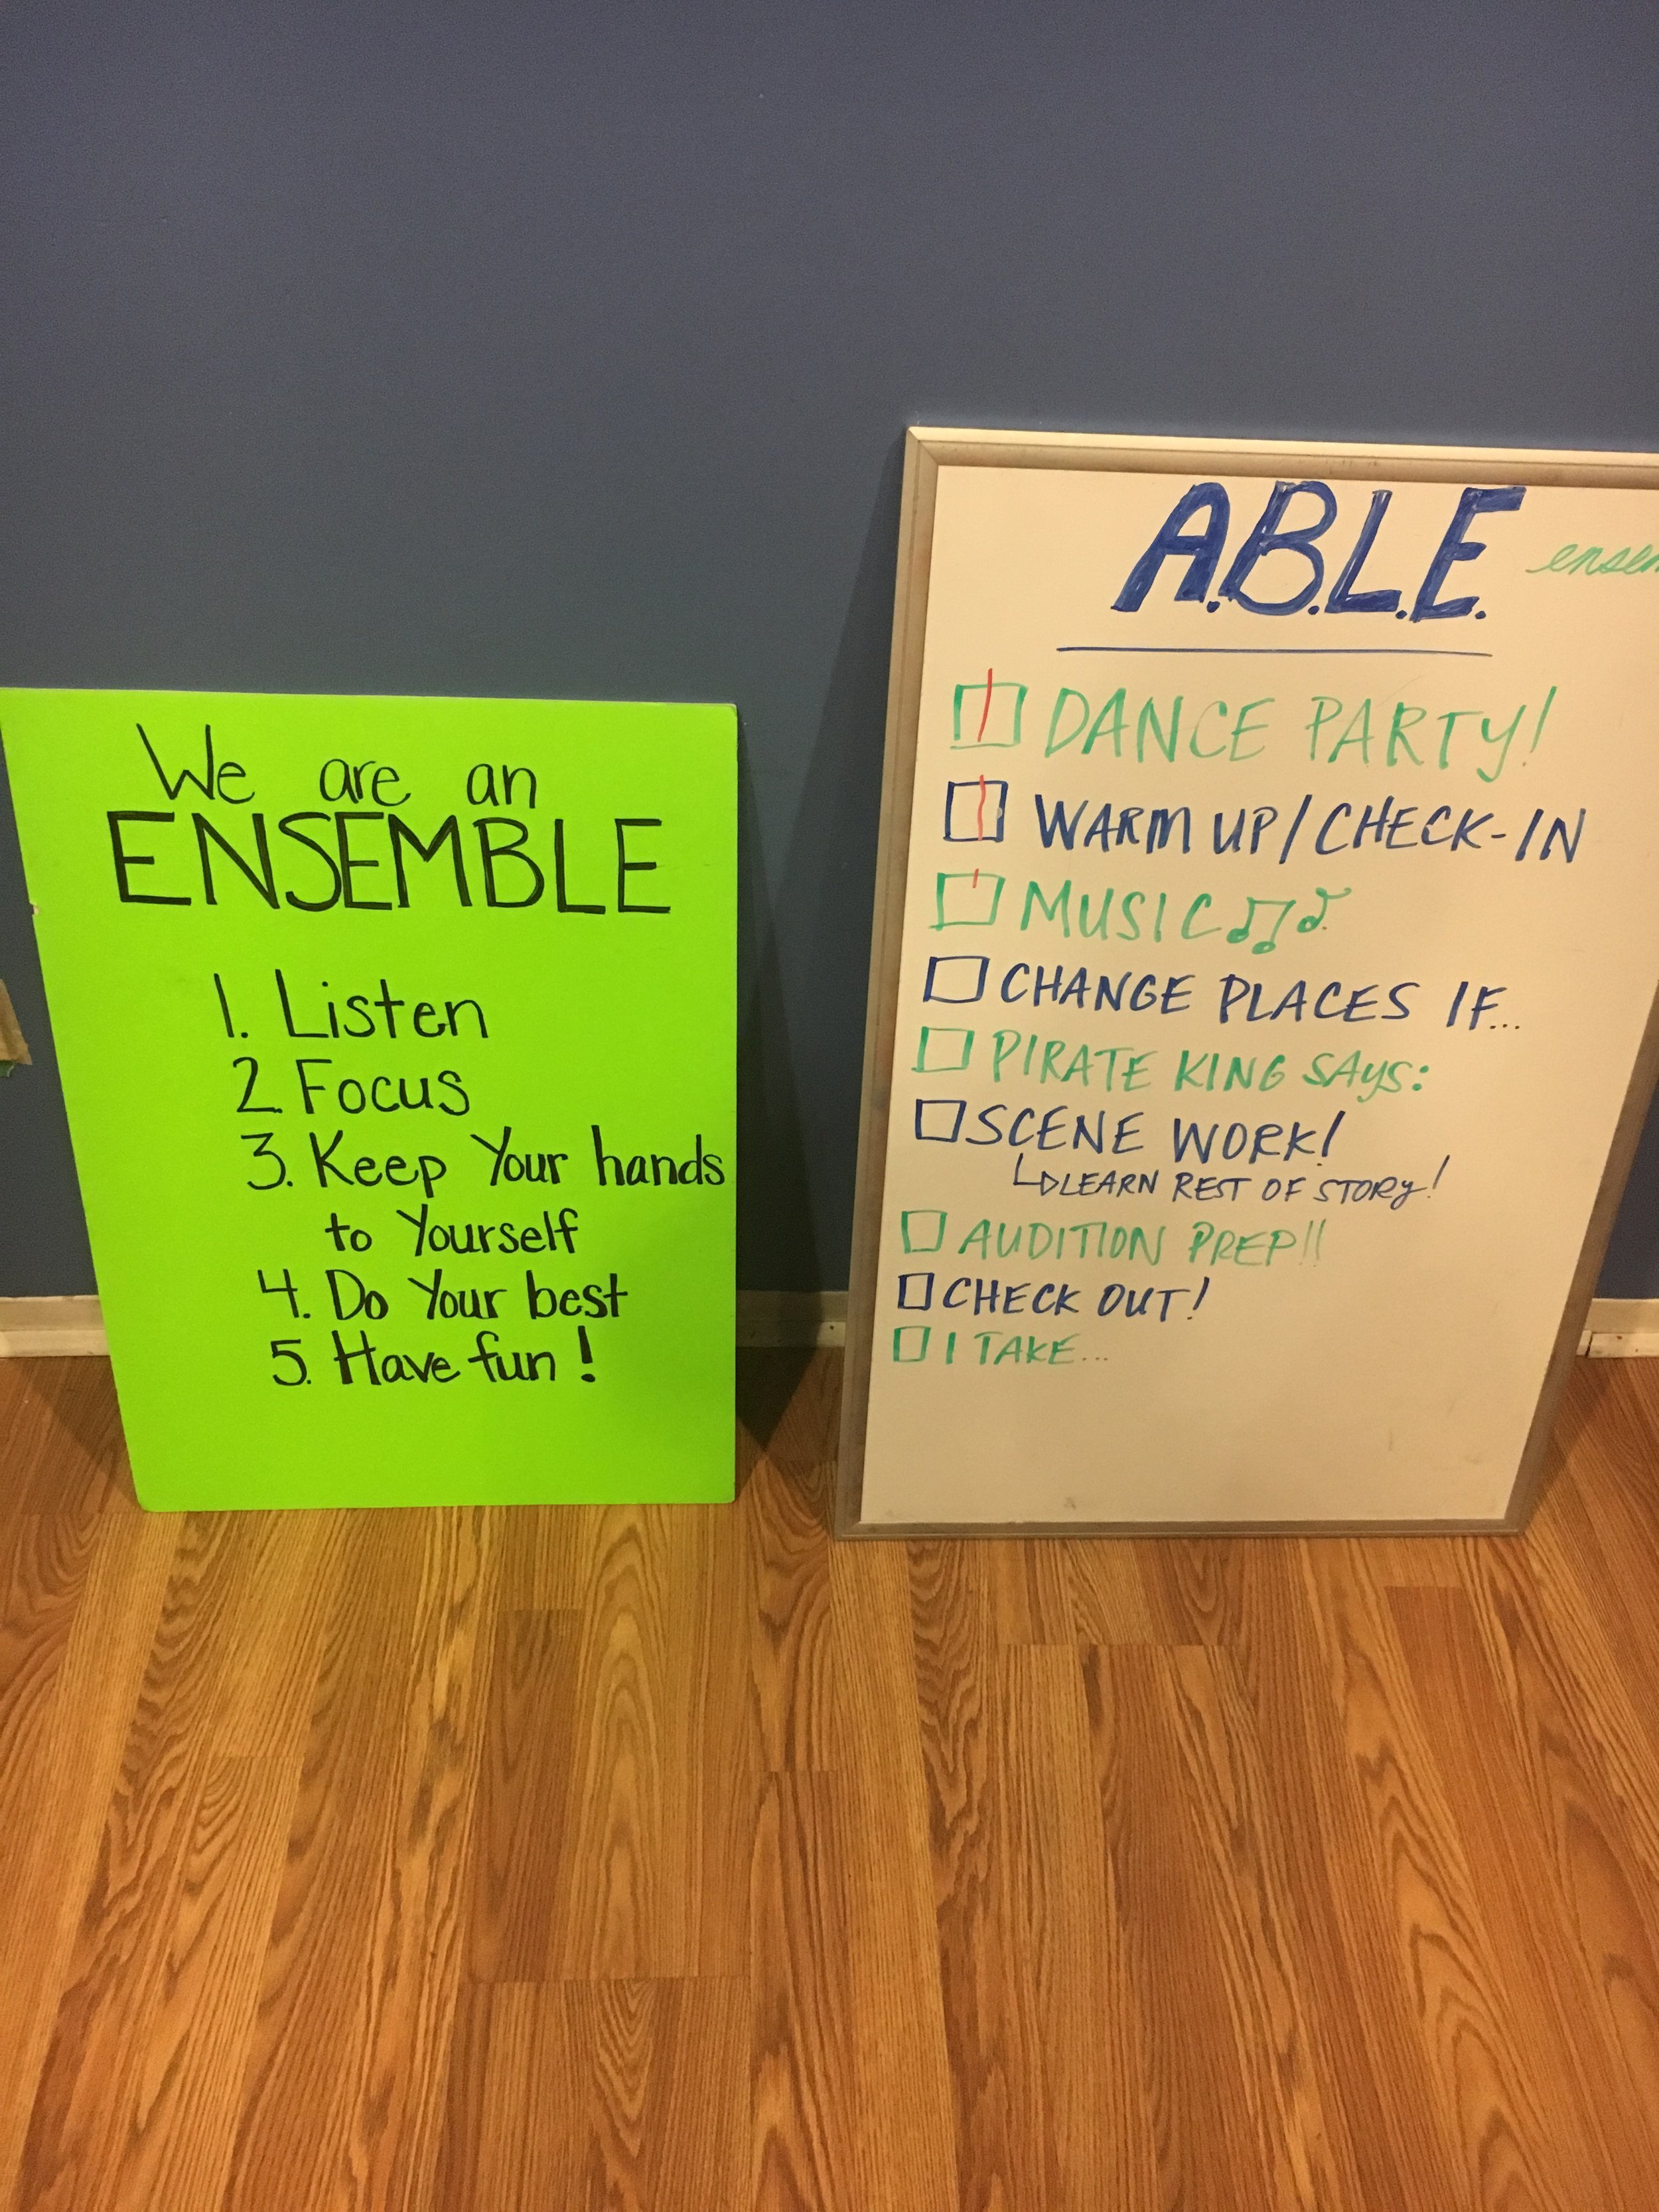 We are an
ENSEMBLE
1. Listen
2. Focus
3. Keep Your hands
to Yourself
4. Do Your best
5. Have fun!
A.B.L.E.
DANCE PARTY!
WARM UP/CHECK-IN
MUSIC
CHANGE PLACES IF...
PIRATE KING SAYS:
SCENE WORK!
LEARN REST OF STORY!
AUDITION PREP!!
CHECK OUT!
I TAKE...